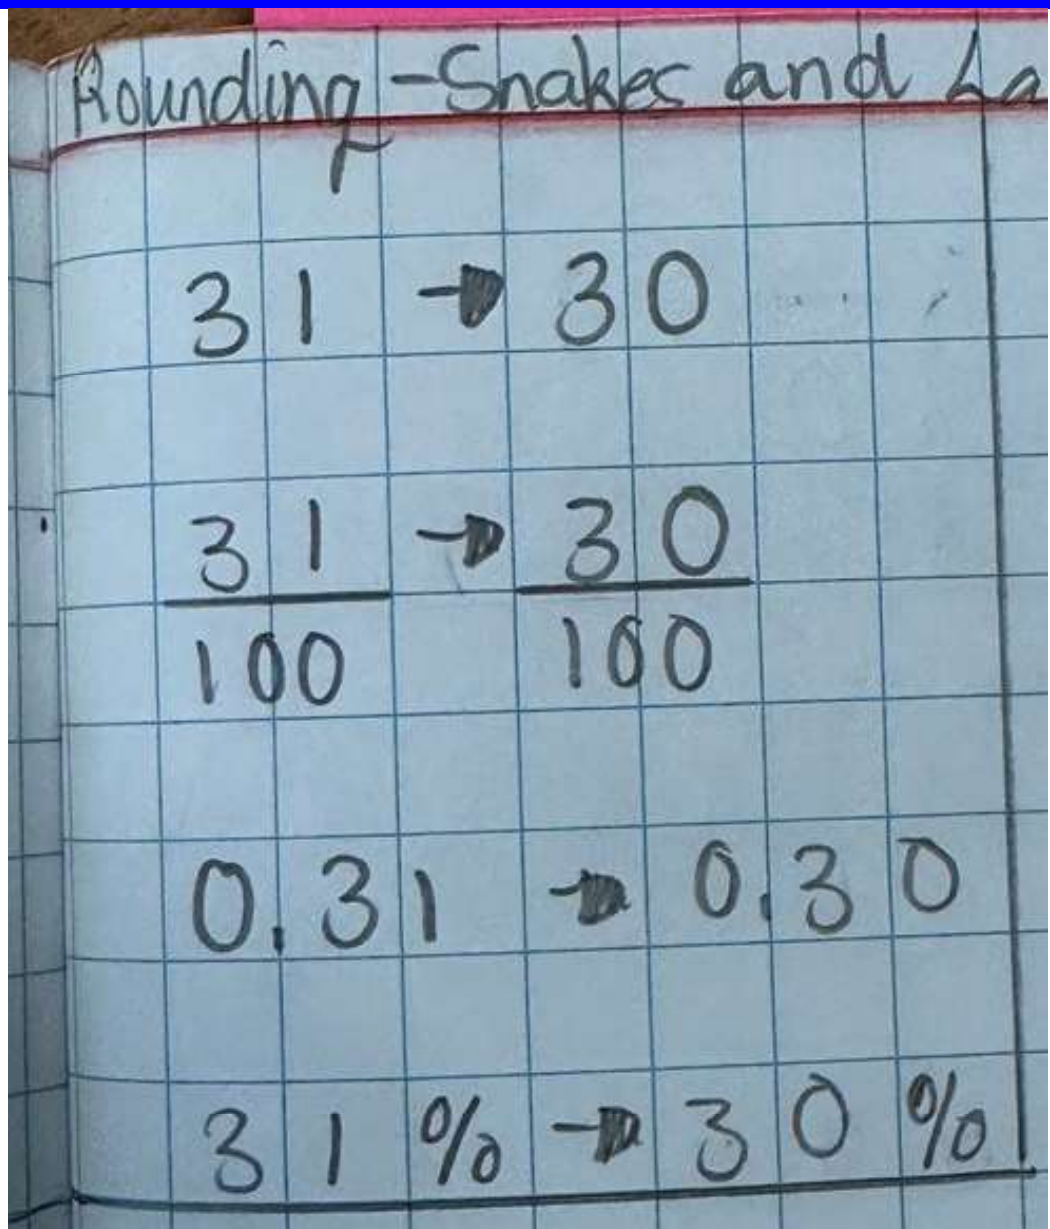 Rounding - Snakes and La
31 → 30
31/100 → 30/100
0.31 → 0.30
31% → 30%